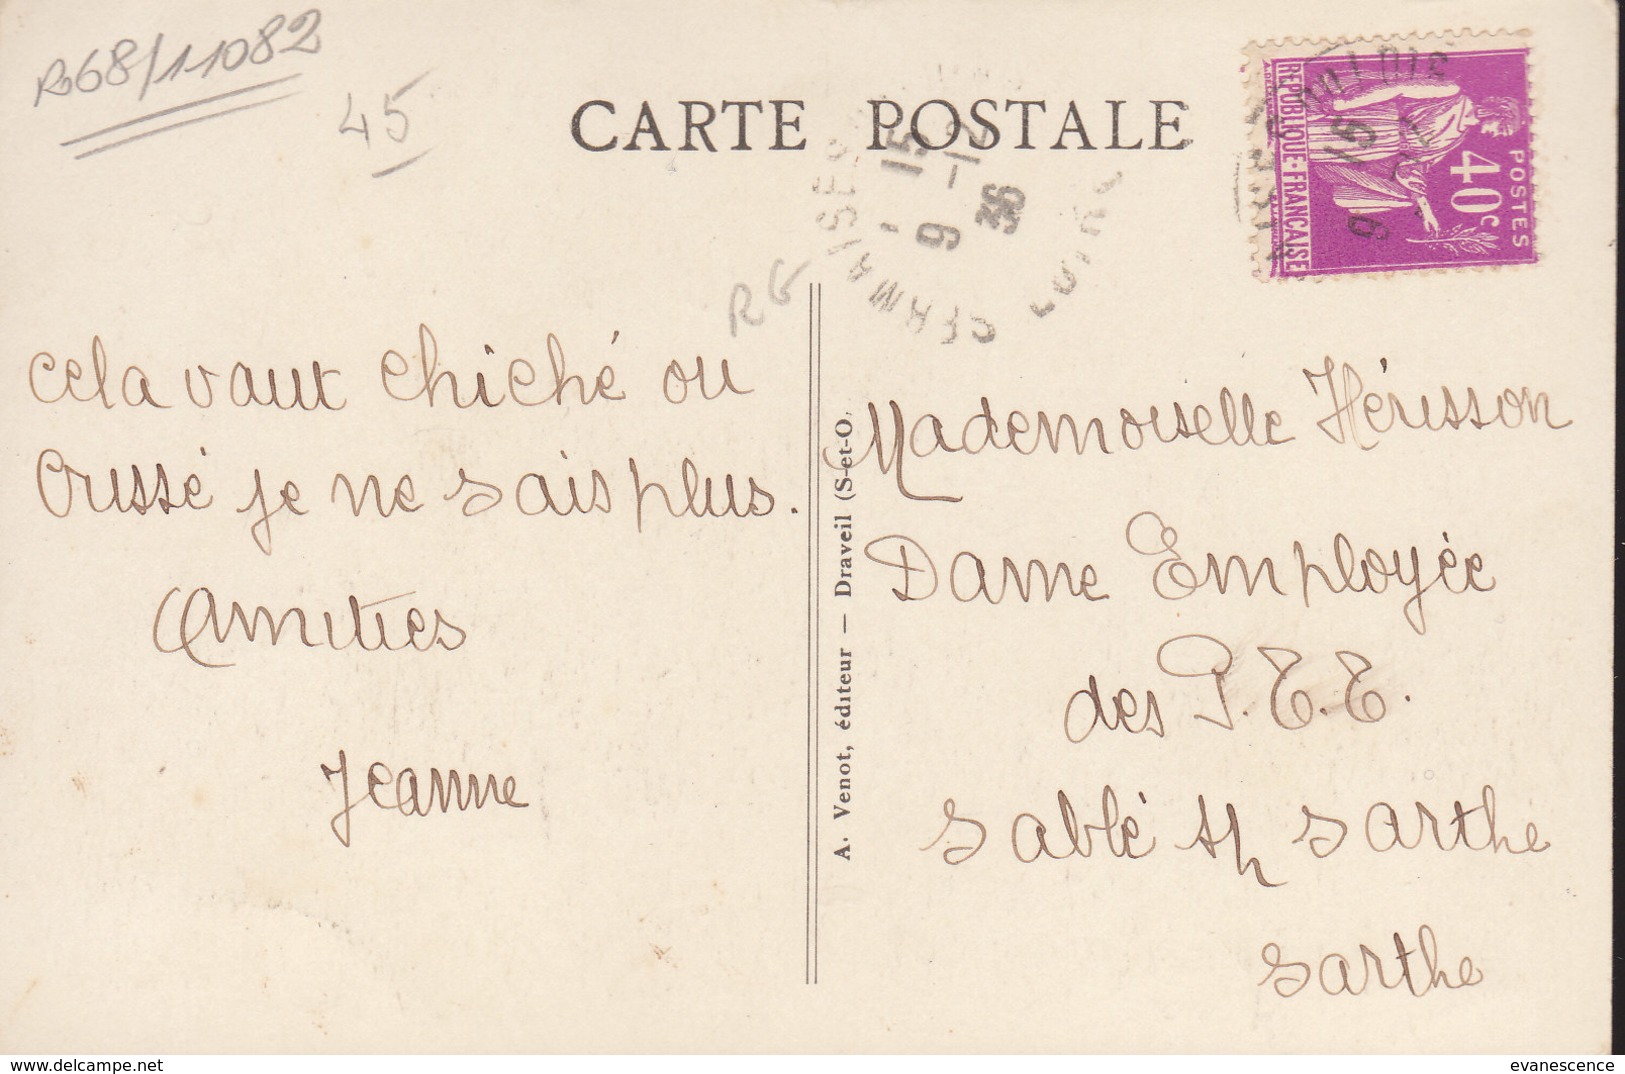 R68/11082
45
CARTE POSTALE
15
9 -12
36
SERMAISES
LOIRET
RG
REPUBLIQUE·FRANÇAISE
40c
POSTES
15
9
cela vaut chiché ou
Orussé je ne sais plus.
Amitiés
Jeanne
A. Venot, éditeur — Draveil (S-et-O.
Mademoiselle Hérisson
Dame Employée
des P.T.T.
Sablé s/ Sarthe
Sarthe
www.delcampe.net
evanescence